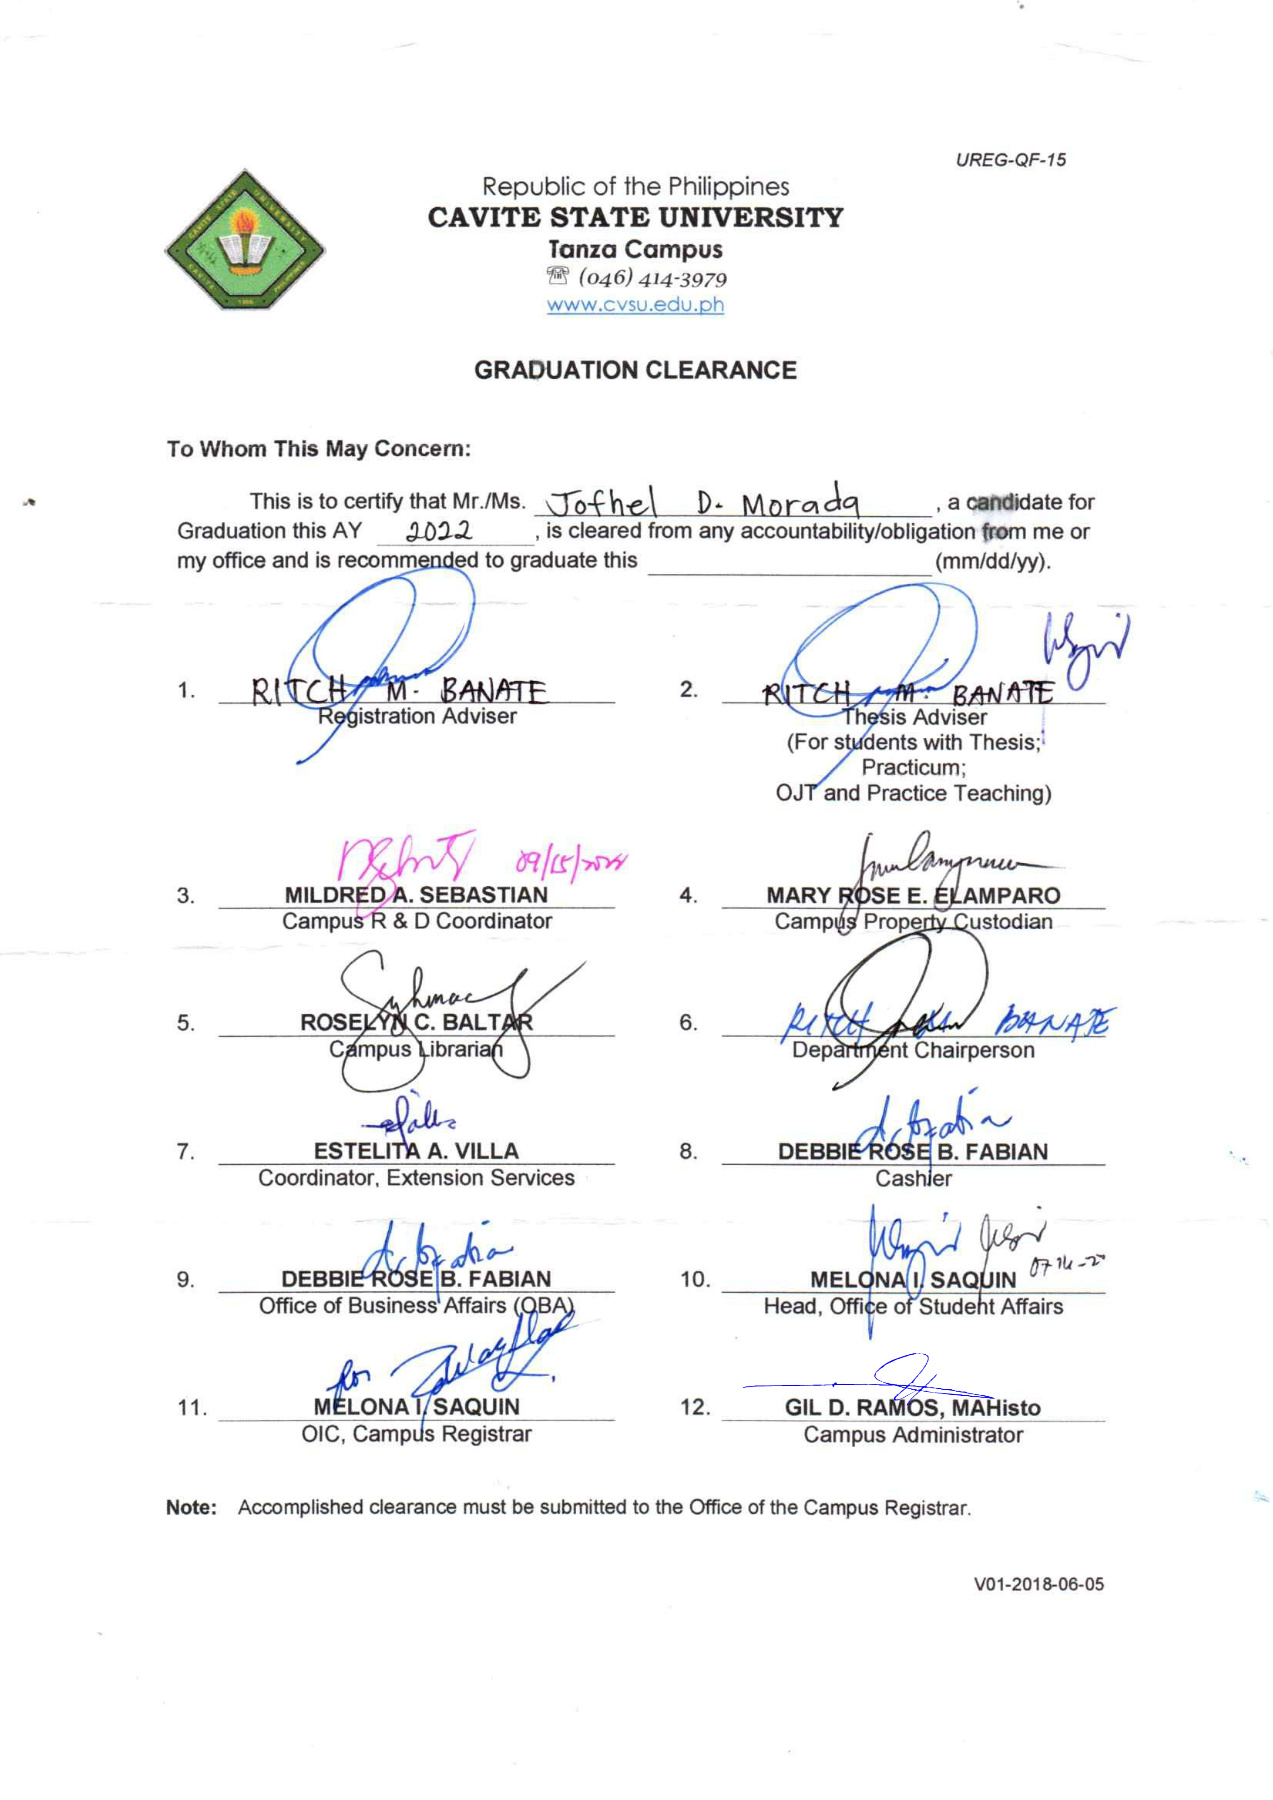 UREG-QF-15
Republic of the Philippines
CAVITE STATE UNIVERSITY
Tanza Campus
☏ (046) 414-3979
www.cvsu.edu.ph
GRADUATION CLEARANCE
To Whom This May Concern:
This is to certify that Mr./Ms. Jofhel D. Morada, a candidate for
Graduation this AY 2022, is cleared from any accountability/obligation from me or
my office and is recommended to graduate this ____ (mm/dd/yy).
1. RITCH M. BANATE
Registration Adviser
2. RITCH M. BANATE
Thesis Adviser
(For students with Thesis;
Practicum;
OJT and Practice Teaching)
3. MILDRED A. SEBASTIAN
Campus R & D Coordinator
4. MARY ROSE E. ELAMPARO
Campus Property Custodian
5. ROSELYN C. BALTAR
Campus Librarian
6. RITCH BANATE
Department Chairperson
7. ESTELITA A. VILLA
Coordinator, Extension Services
8. DEBBIE ROSE B. FABIAN
Cashier
9. DEBBIE ROSE B. FABIAN
Office of Business Affairs (OBA)
10. MELONA I. SAQUIN
Head, Office of Student Affairs
for
11. MELONA I. SAQUIN
OIC, Campus Registrar
12. GIL D. RAMOS, MAHisto
Campus Administrator
Note: Accomplished clearance must be submitted to the Office of the Campus Registrar.
V01-2018-06-05